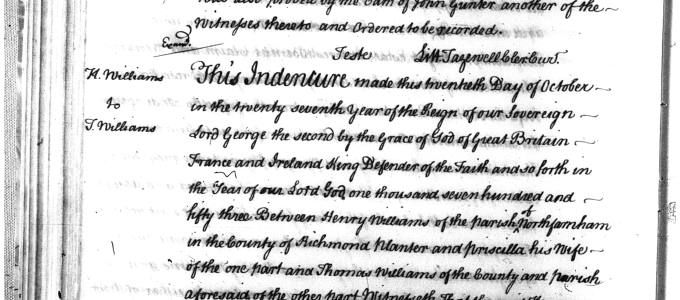 was also proved by the Oath of John Gunter another of the
Witnesses thereto and Ordered to be recorded.
Examd.
Teste Litt: Tazewell Cler Cur.
H. Williams
to
T. Williams
This Indenture made this twentieth Day of October
in the twenty seventh Year of the Reign of our Sovereign
Lord George the second by the Grace of God of Great Britain
France and Ireland King Defender of the Faith and so forth in
the Year of our Lord God one thousand seven hundred and
fifty three Between Henry Williams of the parish of Northfarnham
in the County of Richmond planter and priscilla his Wife
of the one part and Thomas Williams of the County and parish
aforesaid of the other part Witnesseth That the